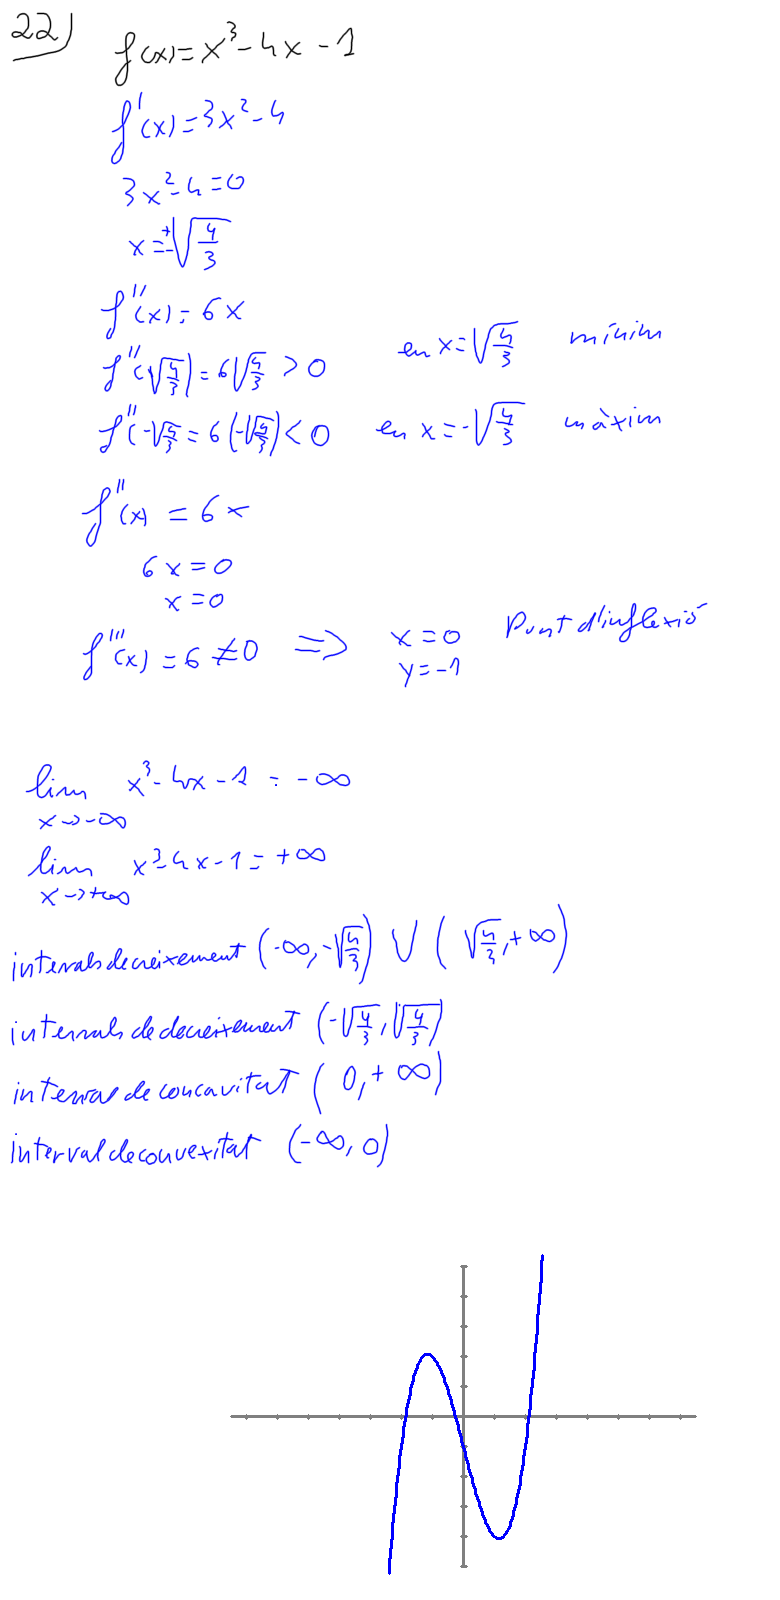 22)
f(x)=x³-4x-1
f'(x)=3x²-4
3x²-4=0
x=±√(4/3)
f''(x)=6x
f''(√(4/3))=6√(4/3)>0 en x=√(4/3) mínim
f''(-√(4/3)=6(-√(4/3))<0 en x=-√(4/3) màxim
f''(x)=6x
6x=0
x=0
f'''(x)=6≠0 ⇒ x=0 Punt d'inflexió
y=-1
lim x³-4x-1=-∞
x→-∞
lim x³-4x-1=+∞
x→+∞
intervals de creixement (-∞,-√(4/3)) ∪ (√(4/3),+∞)
intervals de decreixement (-√(4/3),√(4/3))
interval de concavitat (0,+∞)
interval de convexitat (-∞,0)